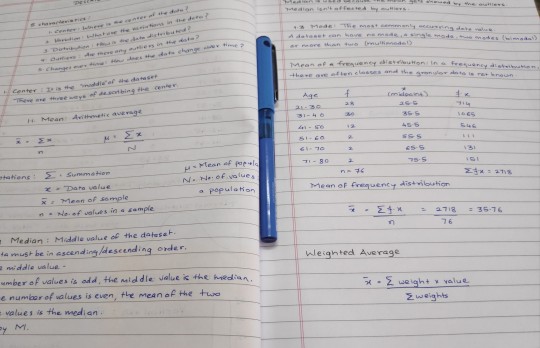 characteristics:
1. Center: Where is the center of the data?
2. Variation: How are the variations in the data?
3. Distribution: How is the data distributed?
4. Outliers: Are there any outliers in the data?
5. Changes over time: How does the data change over time?
1. Center: It is the "middle" of the dataset
There are three ways of describing the center
1.1. Mean: Arithmetic average
x̄ = Σx / n   μ = Σx / N
Notations: Σ - Summation
μ = Mean of
x = Data value
N = No. of values
x̄ = Mean of sample
a population
n = No. of values in a sample
Median: Middle value of the dataset.
must be in ascending/descending order.
middle value -
number of values is odd, the middle value is the median.
number of values is even, the mean of the two
values is the median.
by M.
Median is used because the mean gets skewed by the outliers.
Median isn't affected by outliers.
1.3 Mode: The most commonly occurring data value.
A dataset can have no mode, a single mode, two modes (bimodal)
or more than two (multimodal)
Mean of a frequency distribution: In a frequency distribution,
there are often classes and the granular data is not known
Age f x (midpoint) fx
21-30 28 25.5 714
31-40 30 35.5 1065
41-50 12 45.5 546
51-60 2 55.5 111
61-70 2 65.5 131
71-80 2 75.5 151
n = 76 Σfx = 2718
Mean of frequency distribution
x̄ = Σfx / n = 2718 / 76 = 35.76
Weighted Average
x̄ = Σ weight x value / Σ weights